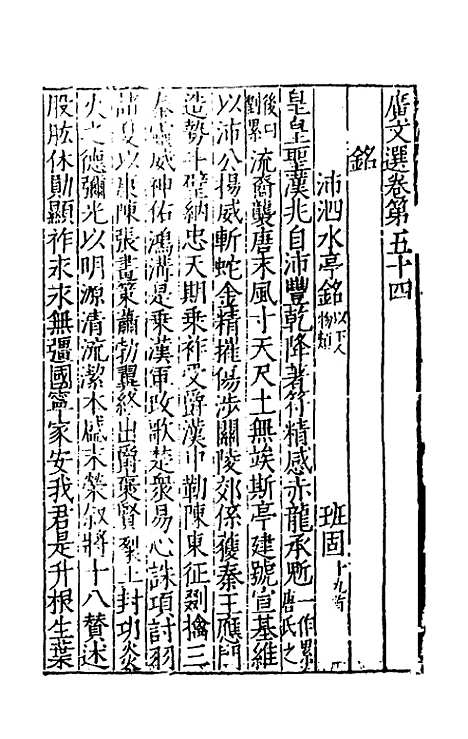 廣文選卷第五十四
銘
沛泗水亭銘 以下人物類 班固 十九首
皇皇聖漢兆自沛豐乾降著符精感赤龍承魁 一作累唐氏之後曰劉累
流裔襲唐末風寸天尺土無竢斯亭建號宣基維
以沛公揚威斬蛇金精摧傷涉關陵郊係獲秦王應門
造勢斗壁納忠天期乘祚受爵漢中勒陳東征剟擒三
秦靈威神佑鴻溝是乘漢軍改歌楚衆易心誅項討羽
諸夏以康陳張畫策蕭勃翼終出爵褒賢列土封功炎
火之德彌光以明源清流潔本盛末榮叙將十八贊述
股肱休勛顯祚永永無疆國寧家安我君是升根生葉